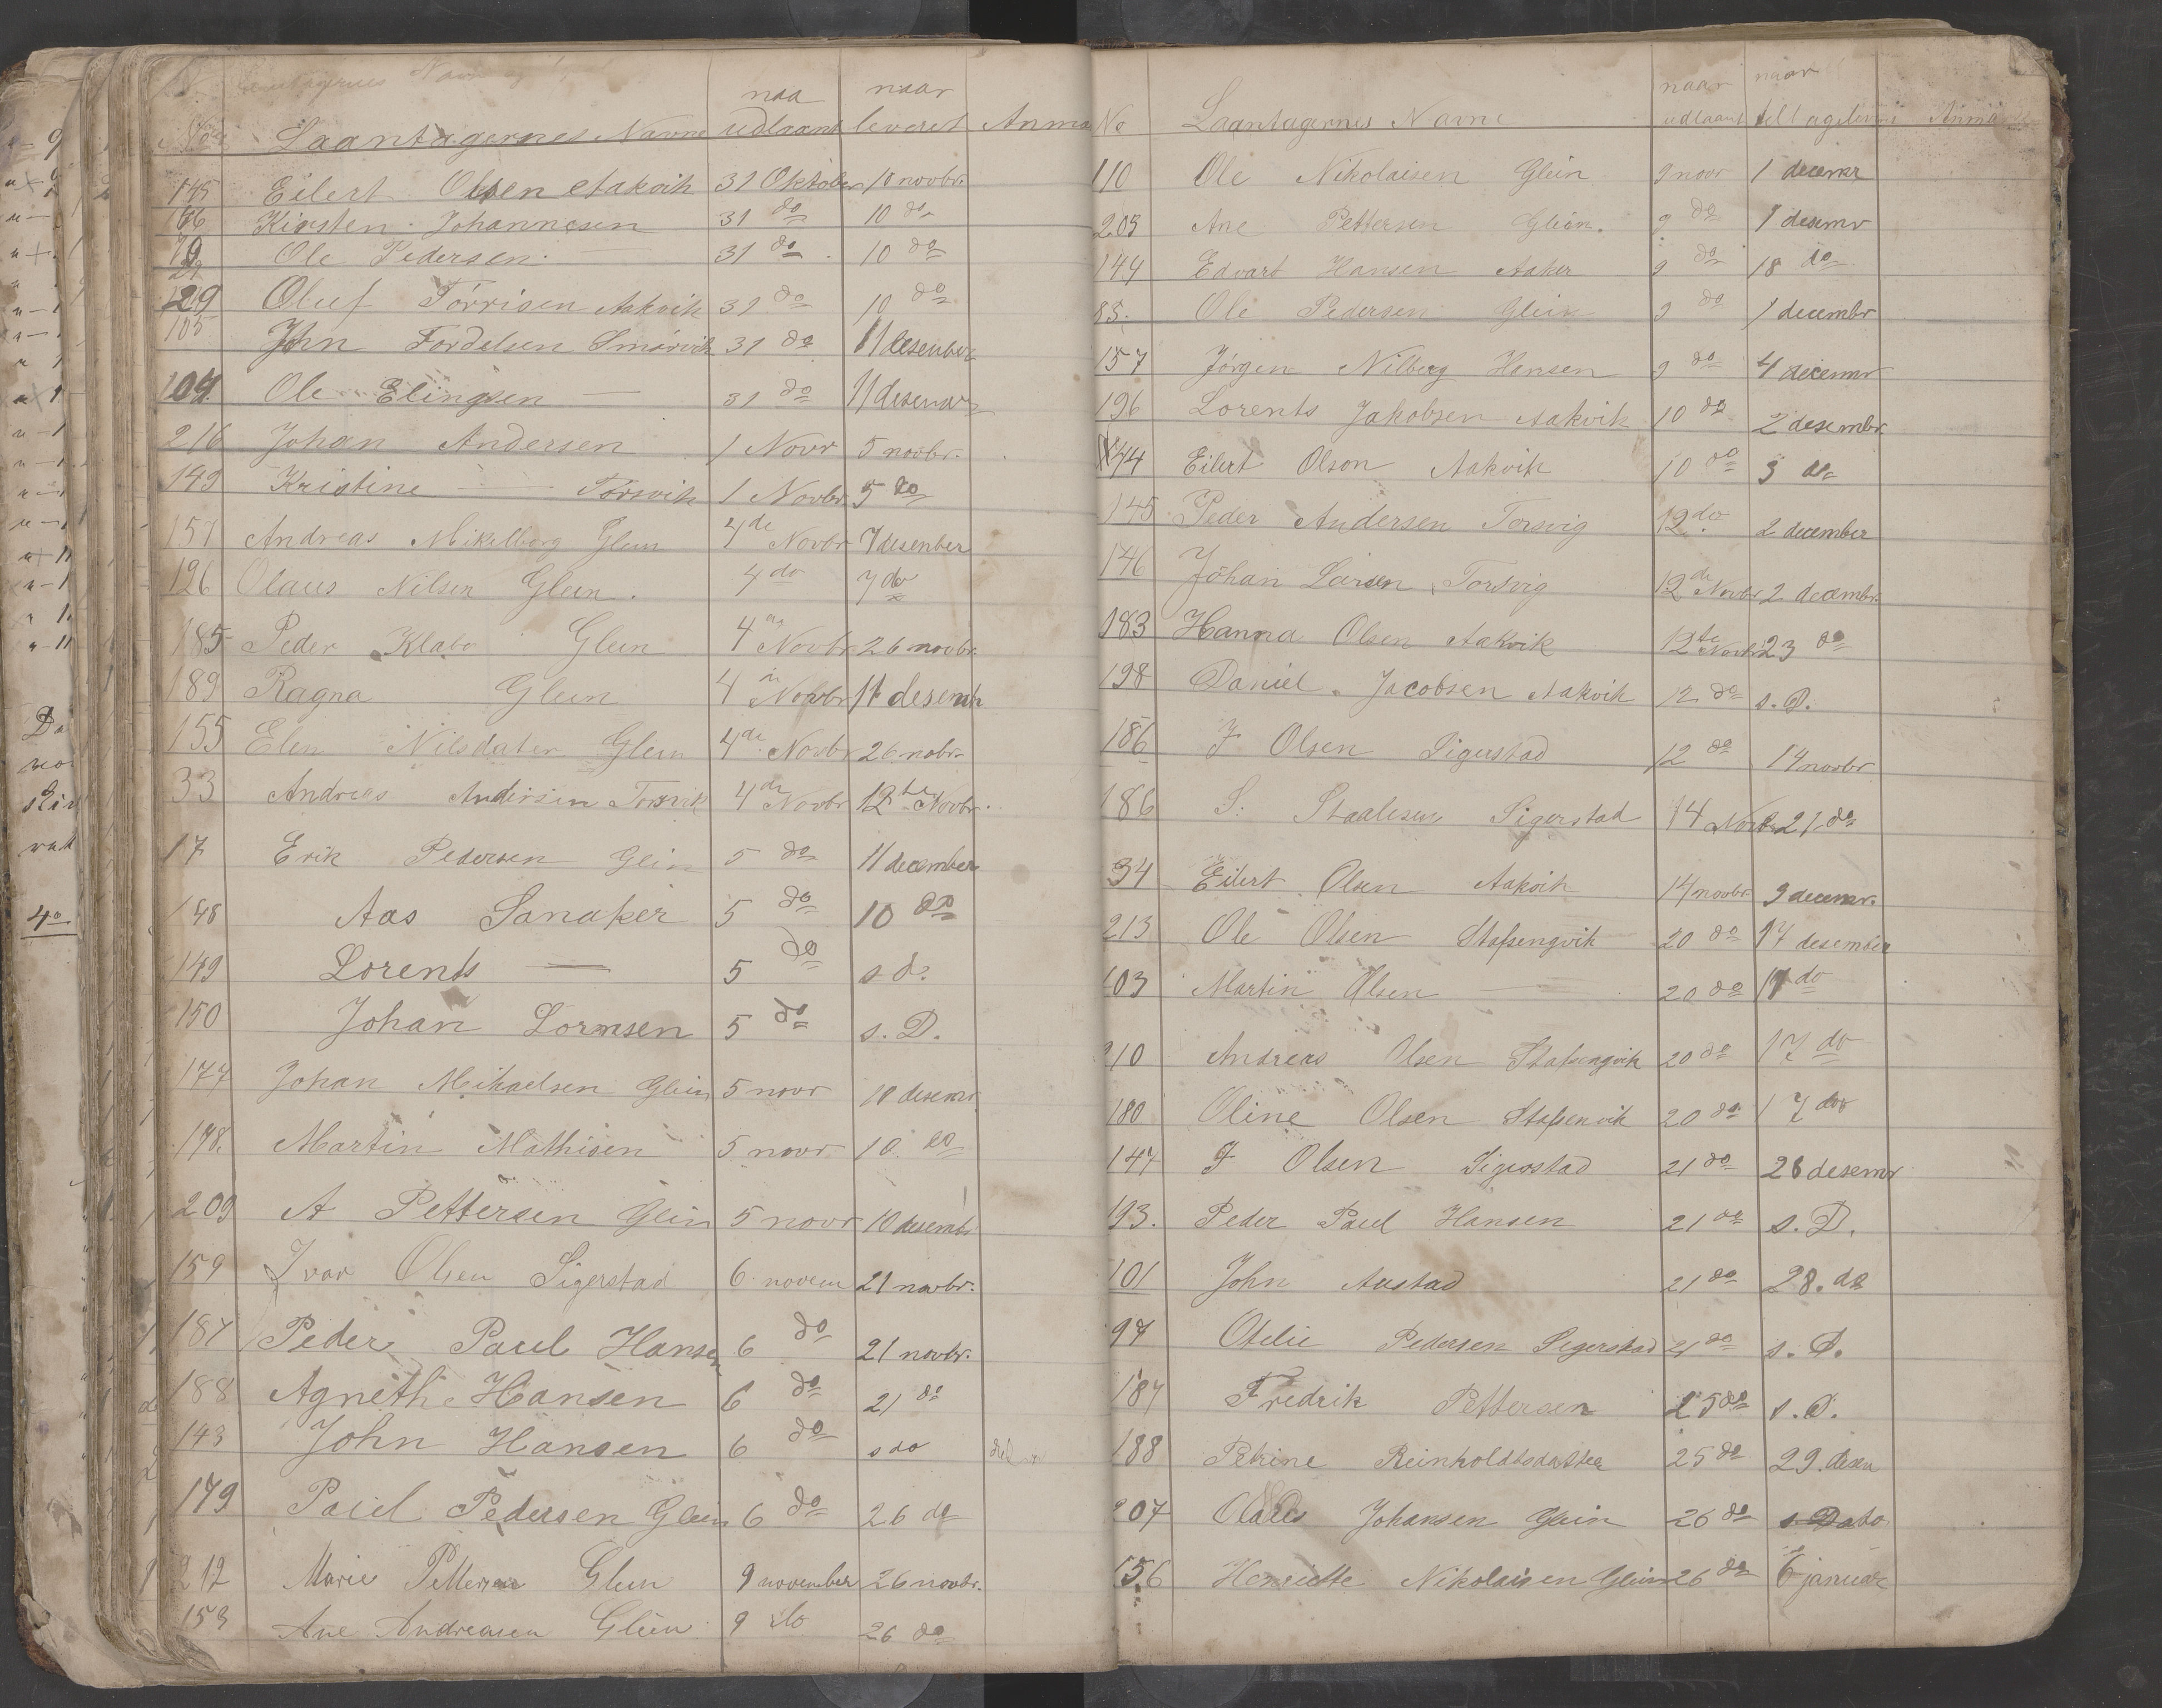 naa naar
Laantagernes Navne udlaant leveret Anma
145 Eilert Olsen Aakvik 31 Oktober 10 novbr.
66 Kirsten Johannesen 31 do 10 do
Ole Pedersen 31 do 10 do
29 Oluf Törrisen Aakvik 31 do 10 do
105 John Tordelsen Smörvik 31 do 11 desenber
104 Ole Elingsen — 31 do 11 desenbr
216 Johan Andersen 1 Novr 5 novbr.
149 Kristine — Torsvik 1 Novbr 5 do
157 Andreas Mikelborg Glein 4de Novbr 7 desenber
126 Olaus Nilsen Glein. 4 do 7 do
185 Peder Klabo Glein 4 Novbr 26 novbr.
189 Ragna Glein 4 Novbr 11 desemb
155 Elen Nilsdater Glein 4de Novbr 26 nobr.
33 Andreas Andersen Torsvik 4de Novbr 12te Novbr.
17 Erik Pedersen Glein 5 do 11 december
148 Aas Sanaker 5 do 10 do
149 Lorents — 5 do s d.
150 Johan Lornsen 5 do s. D.
177 Johan Mikaelsen Glein 5 novr 10 desemr
178. Martin Mathisen 5 novr 10. do
209 A Pettersen Glein 5 novr 10 desembr
159 Ivar Olsen Sigerstad 6 novem 21 novbr.
187 Peder Paul Hansen 6 do 21 novbr.
188 Agnethe Hansen 6 do 21 do
143 John Hansen 6 do s do
179 Paul Pedersen Glein 6 do 26 do
212 Marie Pettersen Glein 9 november 26 novbr.
153 Ane Andreasen Glein 9 do 26 do
naar naar
No Laantagernes Navne udlaant Anmä
110 Ole Nikolaisen Glein 9 novr 1 decembr
205 Ane Pettersen Glein. 9 do 1 desemr
144 Edvart Hansen Aaker 9 do 18 do
85. Ole Pedersen Glein 9 do 1 decembr
157 Jörgen Nilberg Hansen 9 do 4 decemr
196 Lorents Jakobsen Aakvik 10 do 2 desembr
44 Eilert Olson Aakvik 10 do 3 do
145 Peder Andersen Torsvig 12 do 2 december
146 Johan Larsen Torsvig 12de Novbr 2 decembr.
183 Hanna Olsen Aakvik 12te Novbr 23 do
198 Daniel Jacobsen Aakvik 12 do s. D.
186 J Olsen Sigerstad 12 do 14 novbr
186 S. Staalesen Sigerstad 14 Novbr 21. do
34 Eilert Olsen Aakvik 14 novbr 9 decemr.
213 Ole Olsen Stafsengvik 20 do 17 desember
103 Martin Olsen — 20 do 17 do
210 Andreas Olsen Stafsengvik 20 do 17 do
180 Oline Olsen Stafsenvik 20 do 17 do
147 J Olsen Sigerstad 21 do 28 desemr
193. Peder Paul Hansen 21 do s. D.
101 John Austad 21 do 28. do
97 Otelie Pedersen Segerstad 21 do s. D.
187 Fredrik Pettersen 25 do s. D.
188 Petrine Reinholdtsdatter 25 do 29. desem
207 Olaus Johansen Glein 26 do s Dato
156 Henriette Nikolaisen Glein 26 do 6 januar